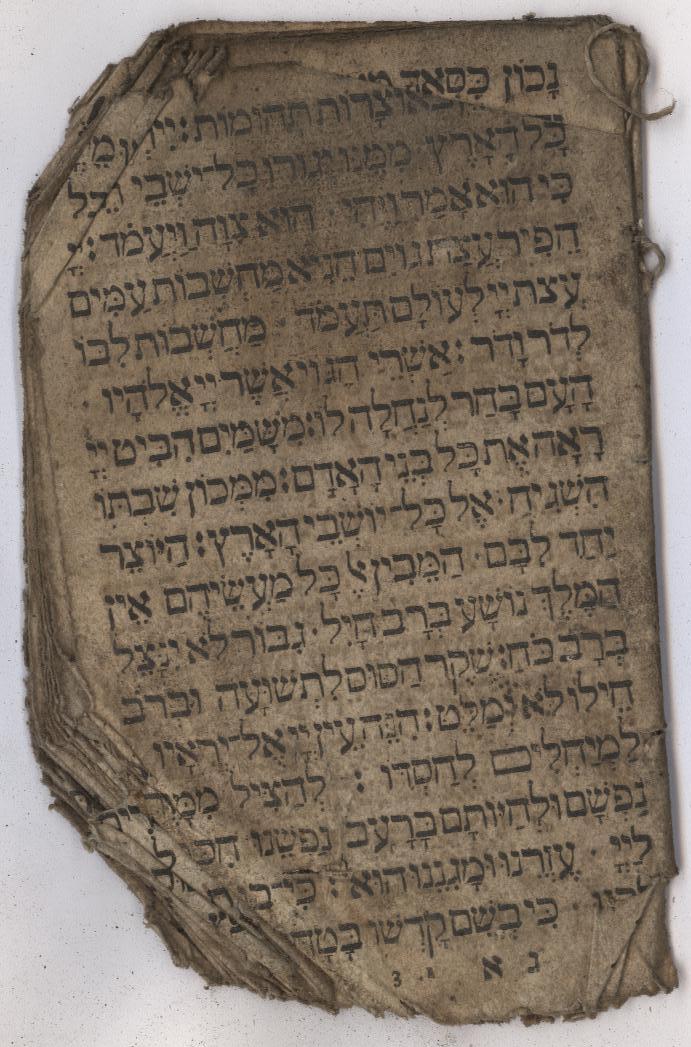 נָכוֹן כִּסְאֲךָ
בְּאוֹצָרוֹת תְּהוֹמוֹת:
כָּל הָאָרֶץ מִמֶּנּוּ יָגוּרוּ כָּל־יֹשְׁבֵי תֵבֵל
כִּי הוּא אָמַר וַיֶּהִי · הוּא צִוָּה וַיַּעֲמֹד: יְיָ
הֵפִיר עֲצַת גּוֹיִם הֵנִיא מַחְשְׁבוֹת עַמִּים
עֲצַת יְיָ לְעוֹלָם תַּעֲמֹד · מַחְשְׁבוֹת לִבּוֹ
לְדֹר וָדֹר: אַשְׁרֵי הַגּוֹי אֲשֶׁר יְיָ אֱלֹהָיו ·
הָעָם בָּחַר לְנַחֲלָה לוֹ: מִשָּׁמַיִם הִבִּיט יְיָ
רָאָה אֶת כָּל בְּנֵי הָאָדָם: מִמְּכוֹן שִׁבְתּוֹ
הִשְׁגִּיחַ · אֶל כָּל־יוֹשְׁבֵי הָאָרֶץ: הַיּוֹצֵר
יַחַד לִבָּם · הַמֵּבִין אֶל כָּל מַעֲשֵׂיהֶם אֵין
הַמֶּלֶךְ נוֹשָׁע בְּרָב חָיִל · גִּבּוֹר לֹא יִנָּצֵל
בְּרָב כֹּחַ: שֶׁקֶר הַסּוּס לִתְשׁוּעָה וּבְרֹב
חֵילוֹ לֹא יְמַלֵּט: הִנֵּה עֵין יְיָ אֶל־יְרֵאָיו
לַמְיַחֲלִים לְחַסְדּוֹ : לְהַצִּיל
נַפְשָׁם וּלְחַיּוֹתָם בָּרָעָב נַפְשֵׁנוּ
לַיְיָ · עֶזְרֵנוּ וּמָגִנֵּנוּ הוּא : כִּי־בוֹ
· כִּי בְשֵׁם קָדְשׁוֹ
ג א 3